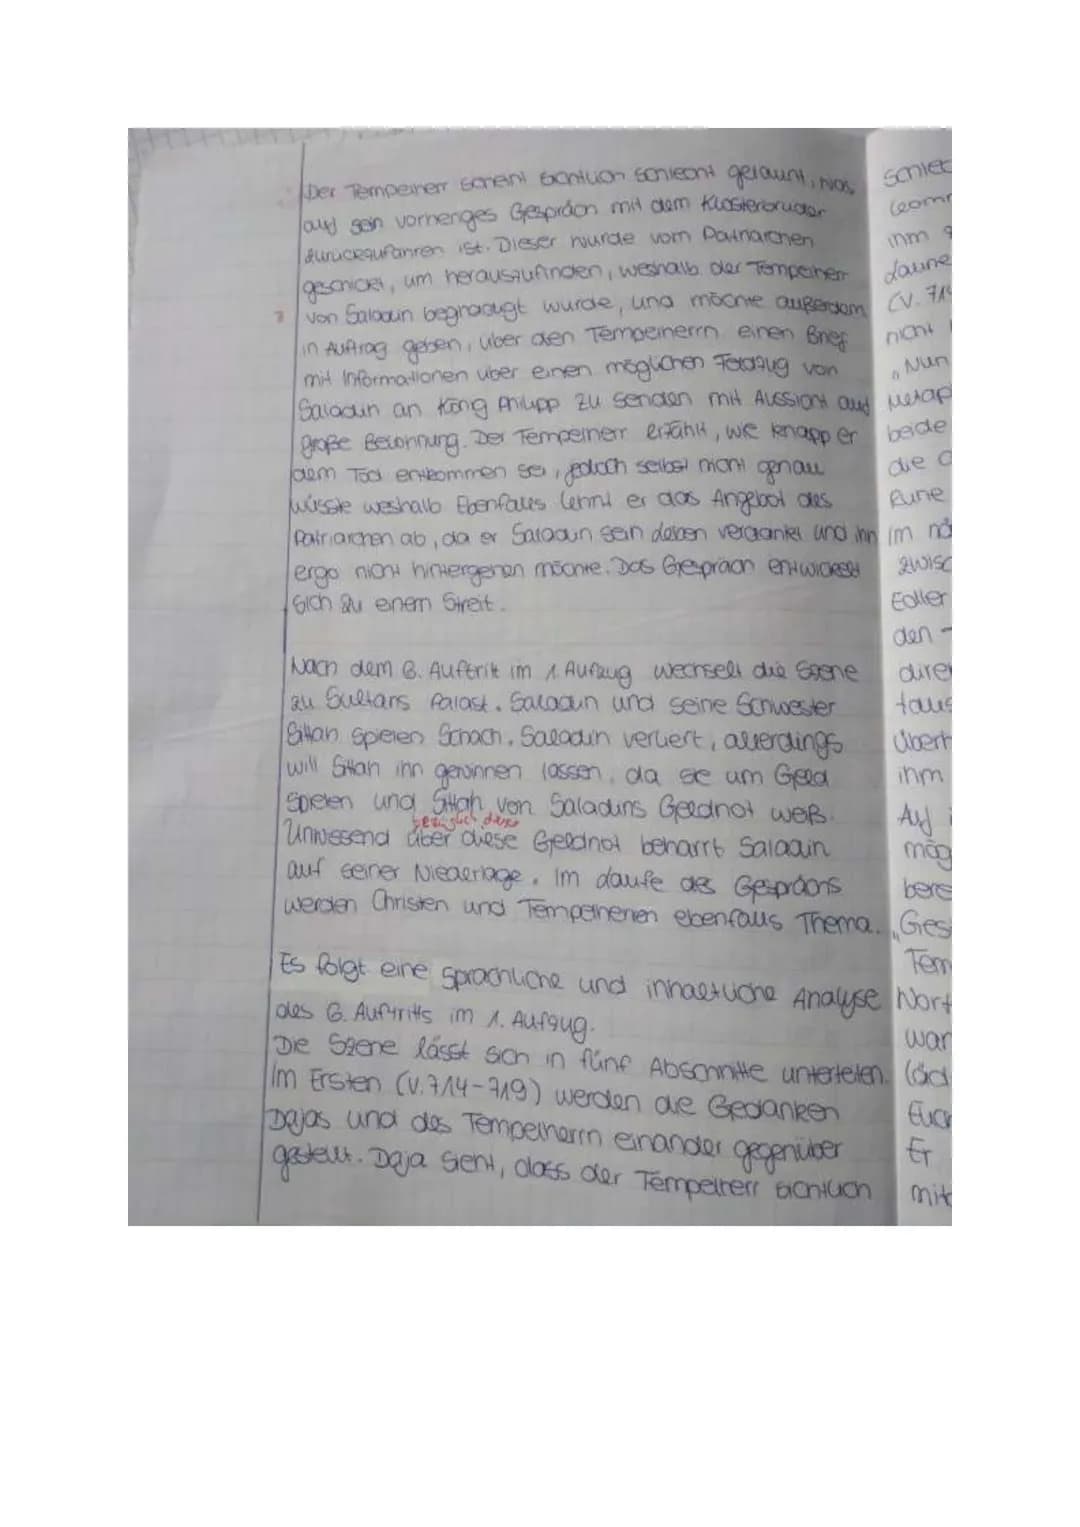 Der Tempelherr scheint sichtlich schlecht gelaunt, was
auf sein vorheriges Gespräch mit dem Klosterbruder
zurückzuführen ist. Dieser wurde vom Patriarchen
geschickt, um herauszufinden, weshalb der Tempelherr
von Saladin begnadigt wurde, und möchte außerdem
in Auftrag geben, über den Tempelherrn einen Brief
mit Informationen über einen möglichen Feldzug von
Saladin an König Philipp zu senden mit Aussicht auf
große Belohnung. Der Tempelherr erzählt, wie knapp er
dem Tod entkommen sei, jedoch selbst nicht genau
wüsste weshalb. Ebenfalls lehnt er das Angebot des
Patriarchen ab, da er Saladin sein Leben verdanket und ihn
ergo nicht hintergehen möchte. Das Gespräch entwickelt
sich zu einem Streit.
Nach dem 6. Auftritt im 1. Aufzug wechselt die Szene
zu Sultans Palast. Saladin und seine Schwester
Sittah spielen Schach. Saladin verliert, allerdings
will Sittah ihn gewinnen lassen, da sie um Geld
spielen und Sittah von Saladins Geldnot weiß.
bezüglich dieser
Unwissend über diese Geldnot beharrt Saladin
auf seiner Niederlage. Im Laufe des Gesprächs
werden Christen und Tempelherren ebenfalls Thema.
Es folgt eine sprachliche und inhaltliche Analyse
des 6. Auftritts im 1. Aufzug.
Die Szene lässt sich in fünf Abschnitte unterteilen.
Im Ersten (V. 714-719) werden die Gedanken
Dajas und des Tempelherrn einander gegenüber
gestellt. Daja sieht, dass der Tempelherr sichtlich
schlec
komm
ihm
Laune
(V. 714
nicht
„Nun
Metap
beide
die
Ruhe
im nä
zwisc
Eoller
den
direk
taus
überh
ihm
Auf
mög
bere
„Gesi
Tem
Wort
war
Euch
Er
mit